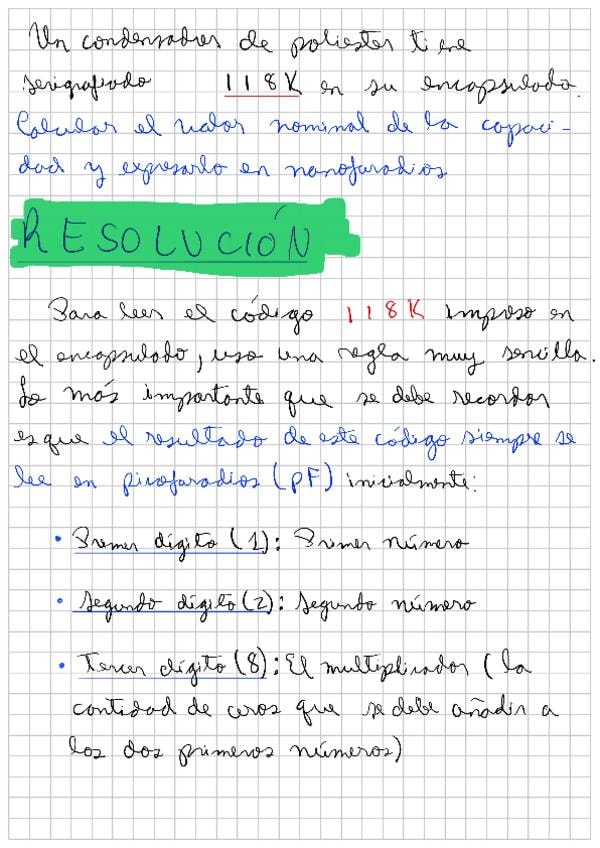 Un condensador de poliester tiene
serigrafiado 118K en su encapsulado.
Calcular el valor nominal de la capaci-
dad y expresarlo en nanofaradios
RESOLUCIÓN
Para leer el código 118K impreso en
el encapsulado, uso una regla muy sencilla.
Lo más importante que se debe recordar
es que el resultado de este código siempre se
lee en picofaradios (pF) inicialmente:
• Primer dígito (1): Primer número
• Segundo dígito (2): Segundo número
• Tercer dígito (8): El multiplicador (la
cantidad de ceros que se debe añadir a
los dos primeros números)